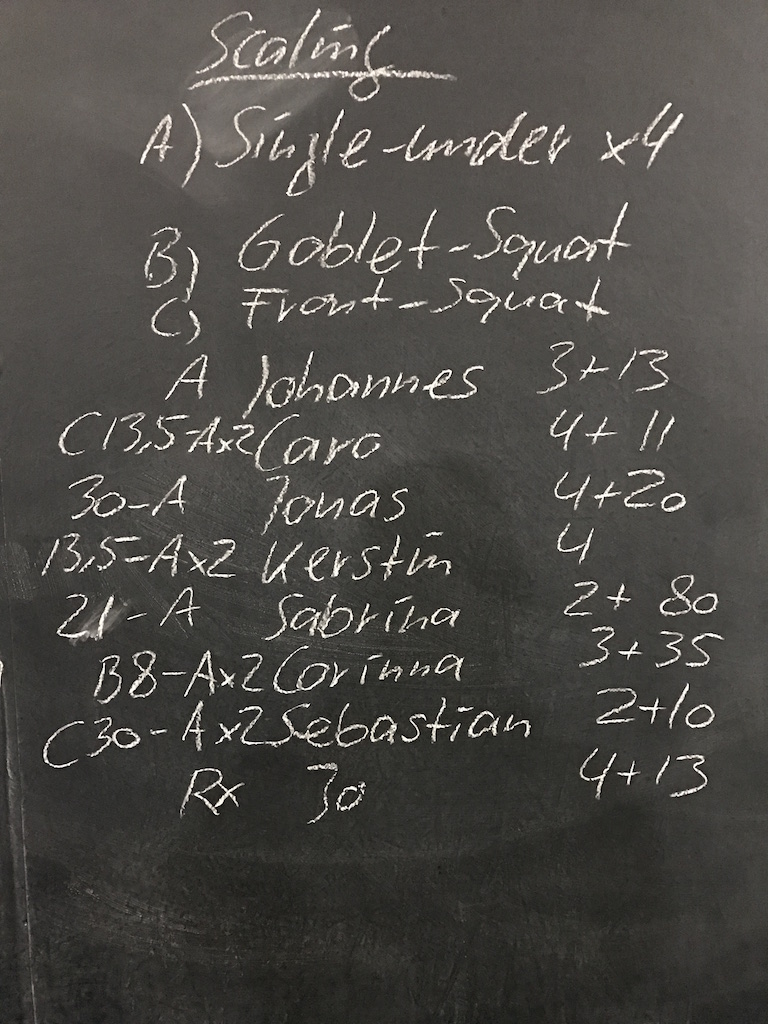 Scaling
A) Single-under x4
B) Goblet-Squat
C) Front-Squat
A Johannes 3+13
C13,5-Ax2 Caro 4+11
30-A Jonas 4+20
13,5-Ax2 Kerstin 4
21-A Sabrina 2+80
B8-Ax2 Corinna 3+35
C30-Ax2 Sebastian 2+10
Rx Jo 4+13